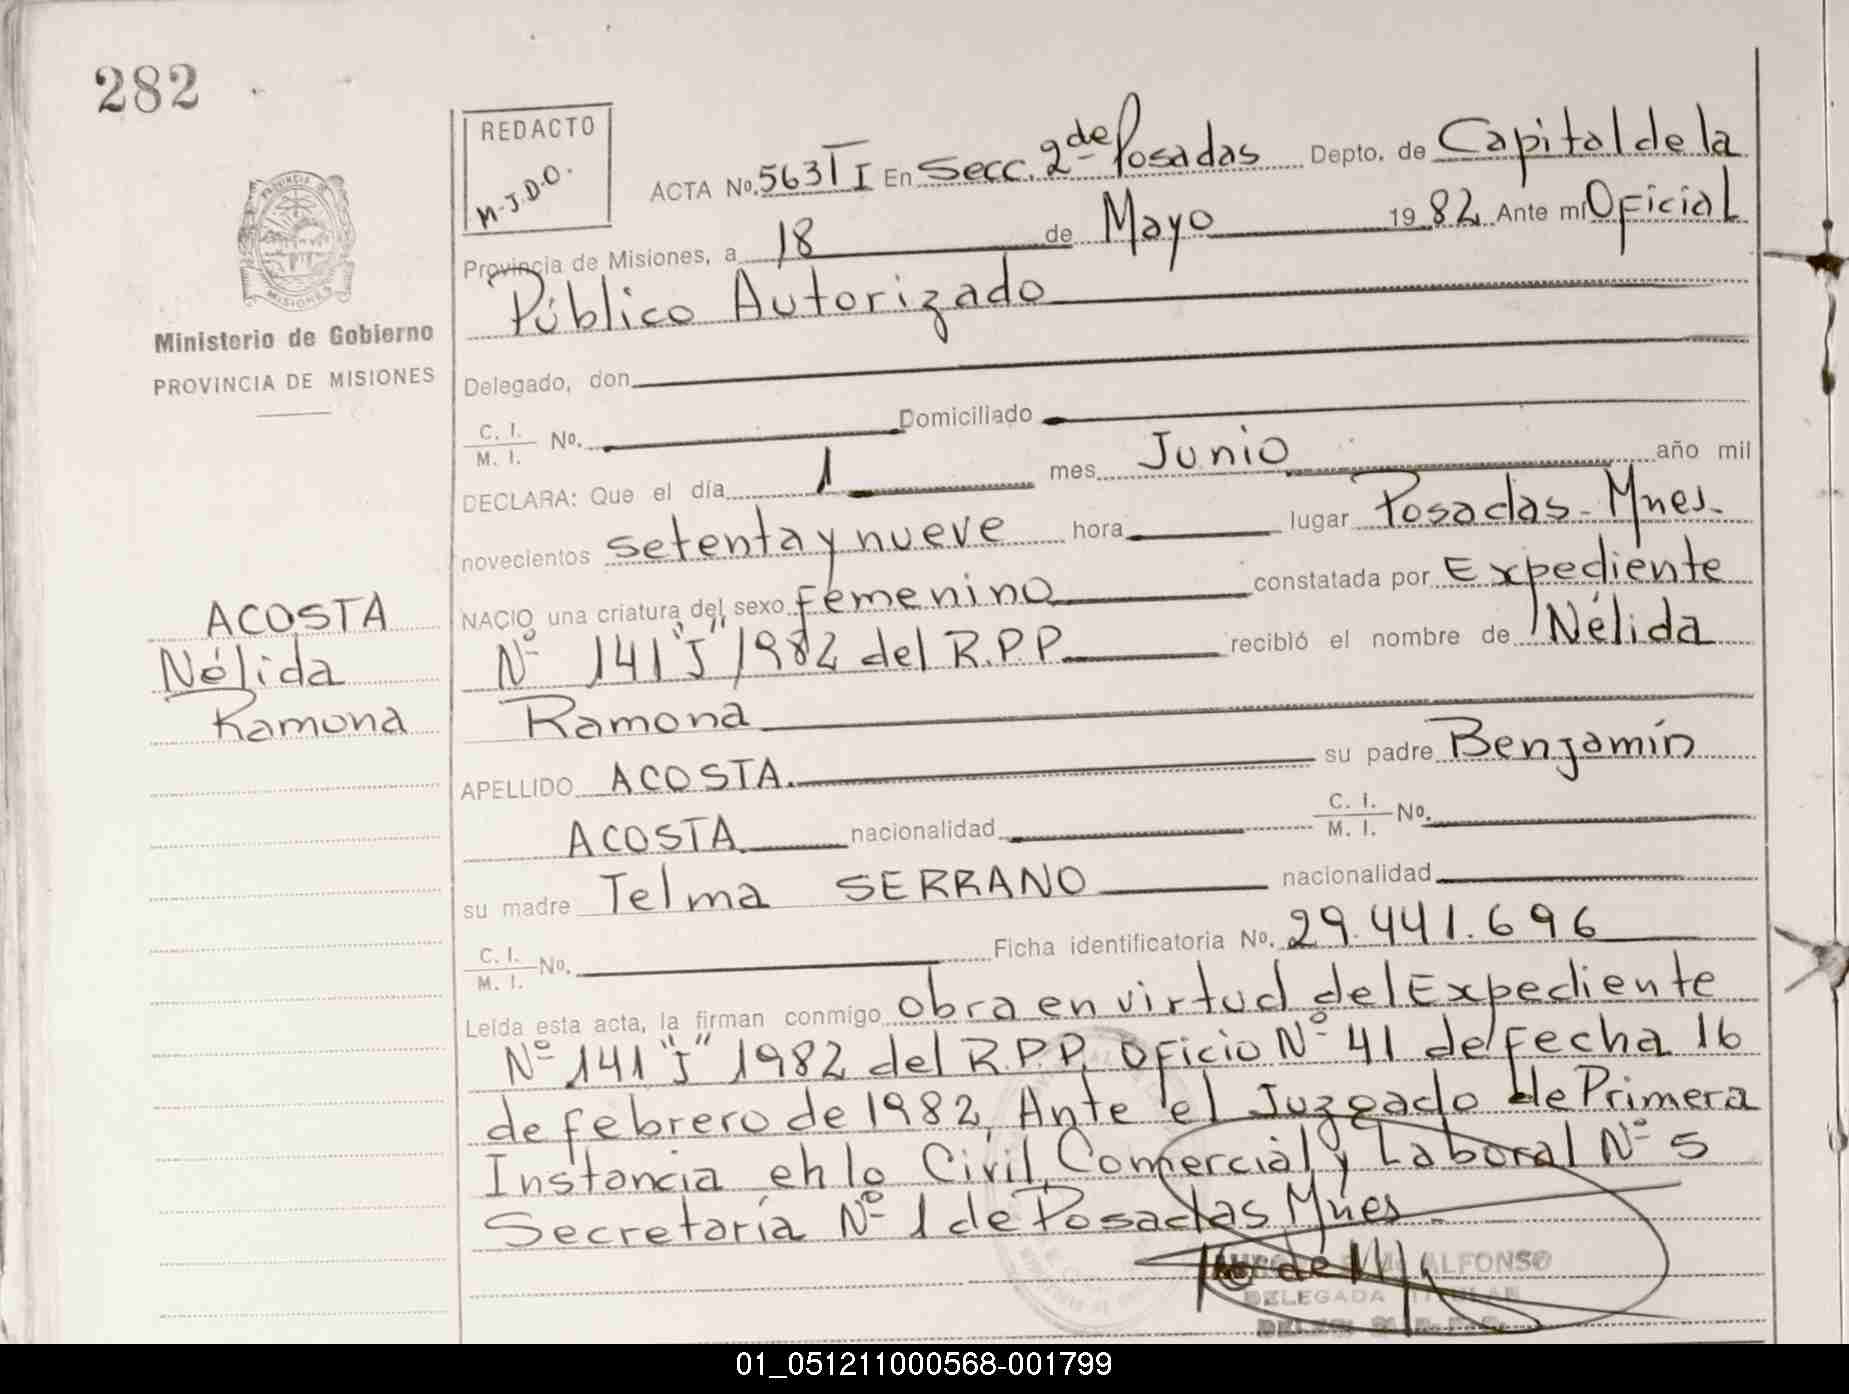 282
REDACTO
M-J.D.O.
ACTA No. 563 T I En Secc. 2da de Posadas Depto. de Capital de la
Provincia de Misiones, a 18 de Mayo 1982 Ante mí Oficial
Público Autorizado
PROVINCIA DE
MISIONES
Ministerio de Gobierno
PROVINCIA DE MISIONES
Delegado, don
C. I. / M. I. No. Domiciliado
DECLARA: Que el día 1 mes Junio año mil
novecientos setenta y nueve hora lugar Posadas - Mnes.
ACOSTA
Nélida
Ramona
NACIO una criatura del sexo femenino constatada por Expediente
Nº 141 "J" 1982 del R.P.P. recibió el nombre de Nélida
Ramona
APELLIDO ACOSTA. su padre Benjamín
ACOSTA nacionalidad C. I. / M. I. No.
su madre Telma SERRANO nacionalidad
C. I. / M. I. No. Ficha identificatoria No. 29.441.696
Leída esta acta, la firman conmigo obra en virtud del Expediente
Nº 141 "J" 1982 del R.P.P. Oficio Nº 41 de fecha 16
de febrero de 1982, Ante el Juzgado de Primera
Instancia en lo Civil, Comercial y Laboral Nº 5
Secretaría Nº 1 de Posadas Mnes.
ALFONSO
DELEGADA TITULAR
01_051211000568-001799